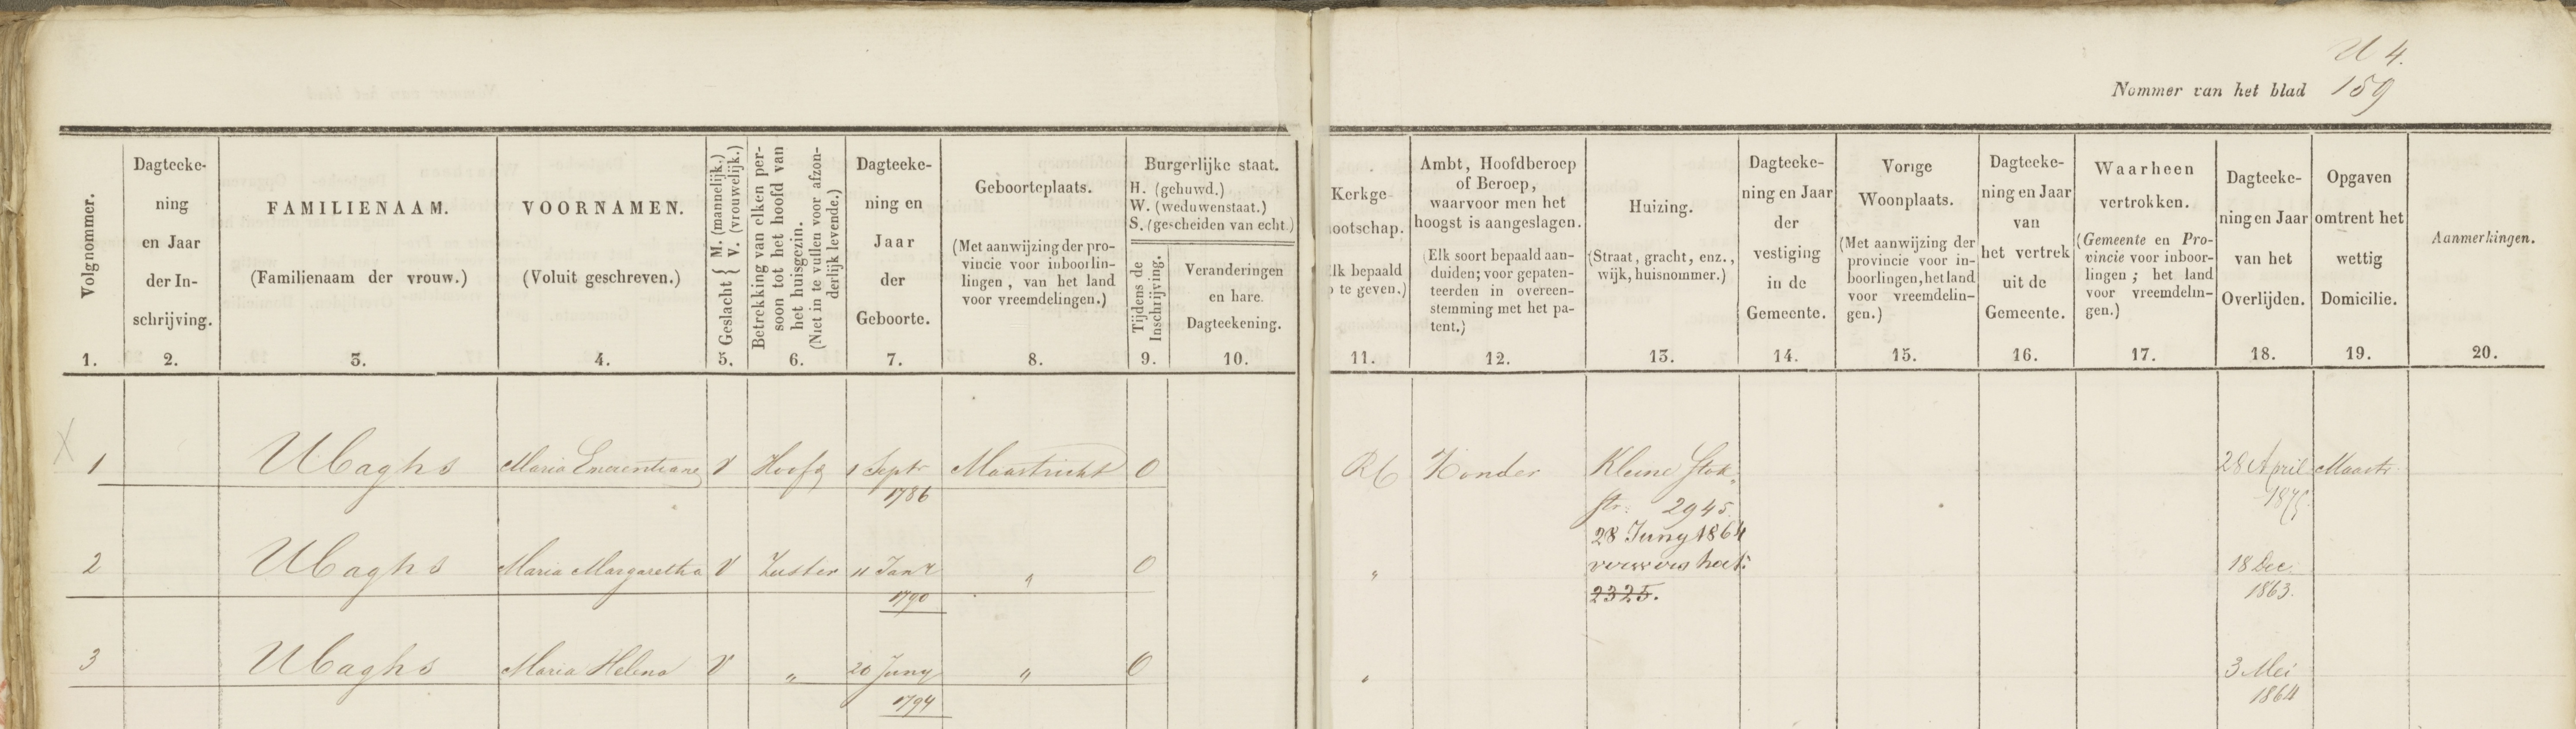 U 4.
Nommer van het blad 159
Volgnommer.
1.
Dagteeke-
ning
en Jaar
der In-
schrijving.
2.
FAMILIENAAM.
(Familienaam der vrouw.)
3.
VOORNAMEN.
(Voluit geschreven.)
4.
Geslacht { M. (mannelijk.)
V. (vrouwelijk.)
5.
Betrekking van elken per-
soon tot het hoofd van
het huisgezin.
(Niet in te vullen voor afzon-
derlijk levende.)
6.
Dagteeke-
ning en
Jaar
der
Geboorte.
7.
Geboorteplaats.
(Met aanwijzing der pro-
vincie voor inboorlin-
lingen, van het land
voor vreemdelingen.)
8.
Burgerlijke staat.
H. (gehuwd.)
W. (weduwenstaat.)
S. (gescheiden van echt.)
Tijdens de
Inschrijving.
9.
Veranderingen
en hare
Dagteekening.
10.
Kerkge-
nootschap.
Elk bepaald
op te geven.)
11.
Ambt, Hoofdberoep
of Beroep,
waarvoor men het
hoogst is aangeslagen.
(Elk soort bepaald aan-
duiden; voor gepaten-
teerden in overeen-
stemming met het pa-
tent.)
12.
Huizing.
(Straat, gracht, enz.,
wijk, huisnommer.)
13.
Dagteeke-
ning en Jaar
der
vestiging
in de
Gemeente.
14.
Vorige
Woonplaats.
(Met aanwijzing der
provincie voor in-
boorlingen, het land
voor vreemdelin-
gen.)
15.
Dagteeke-
ning en Jaar
van
het vertrek
uit de
Gemeente.
16.
Waarheen
vertrokken.
(Gemeente en Pro-
vincie voor inboor-
lingen; het land
voor vreemdelin-
gen.)
17.
Dagteeke-
ning en Jaar
van het
Overlijden.
18.
Opgaven
omtrent het
wettig
Domicilie.
19.
Aanmerkingen.
20.
X 1 Ubaghs Maria Emerentiane V Hoofd 1 Septr 1786 Maastricht O RC Zonder Kleine Stok
str. 2945. 28 April Maastr
28 Juny 1864
verwershoek
2325.
2 Ubaghs Maria Margaretha V Zuster 11 Janr 1790 " O " 18 Dec. 1863.
3 Ubaghs Maria Helena V " 20 Juny 1794 " O " 3 Mei 1864